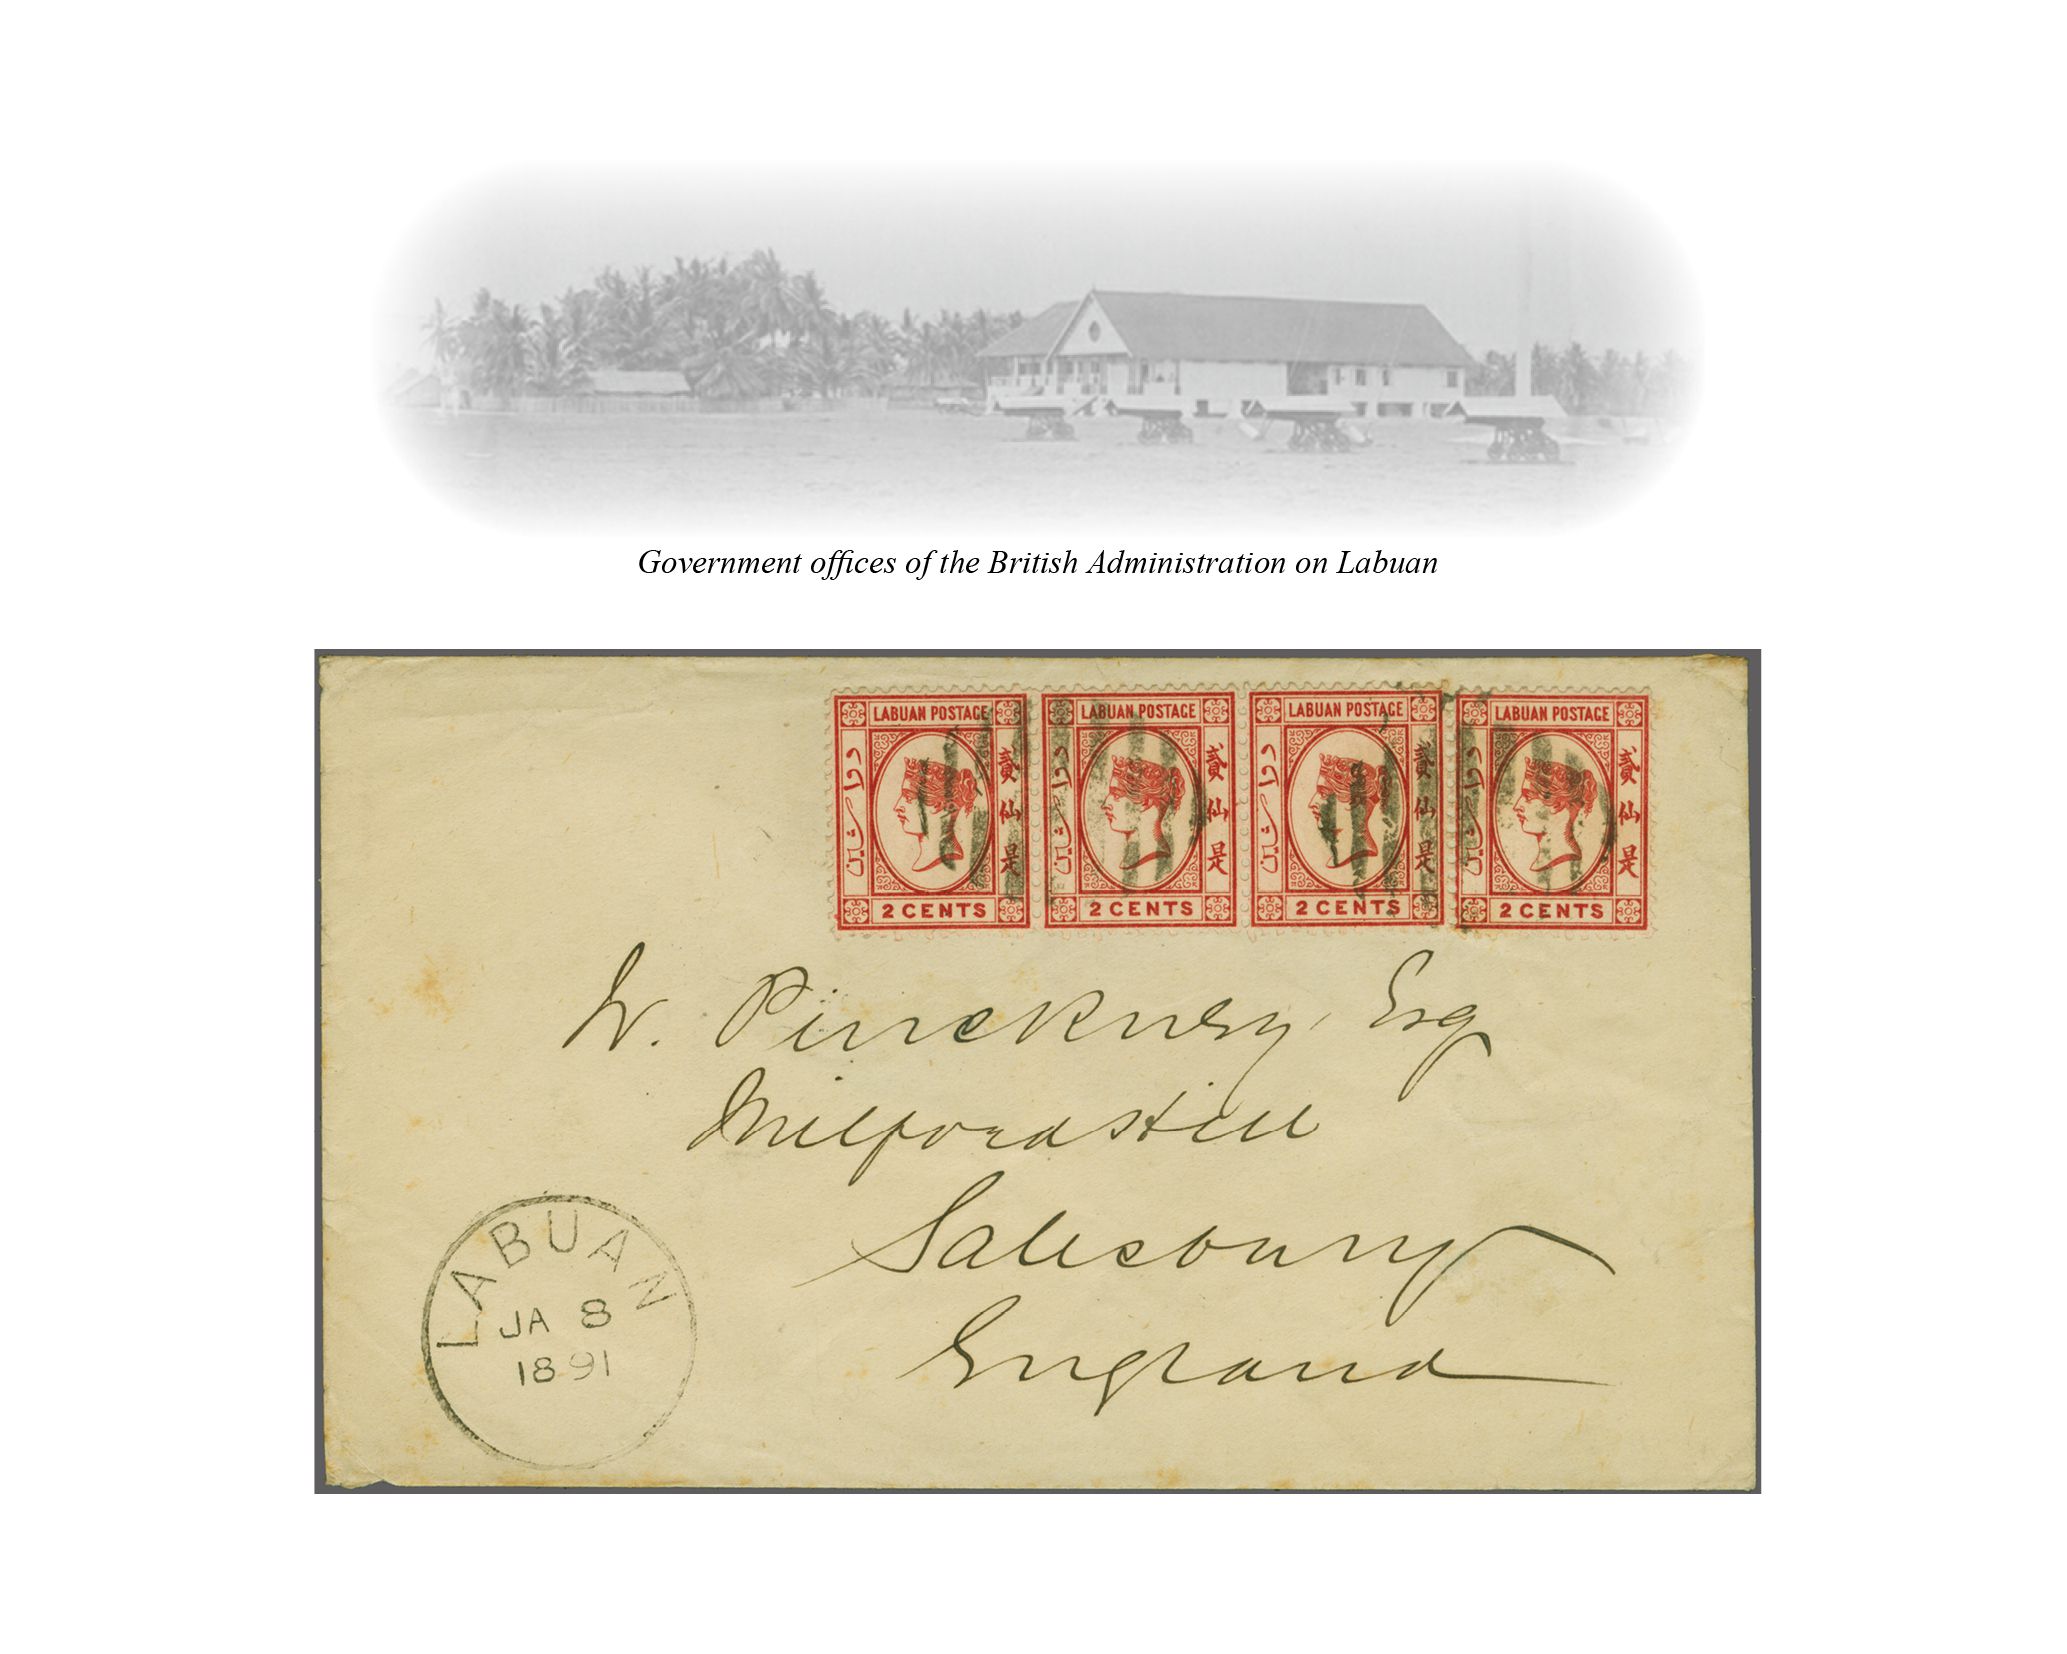 Government offices of the British Administration on Labuan
LABUAN POSTAGE
LABUAN POSTAGE
LABUAN POSTAGE
LABUAN POSTAGE
دوا سين
貳仙是
دوا سين
貳仙是
دوا سين
貳仙是
دوا سين
貳仙是
2 CENTS
2 CENTS
2 CENTS
2 CENTS
W. Pinckney, Esq
Milford Hill
Salisbury
England
LABUAN
JA 8
1891